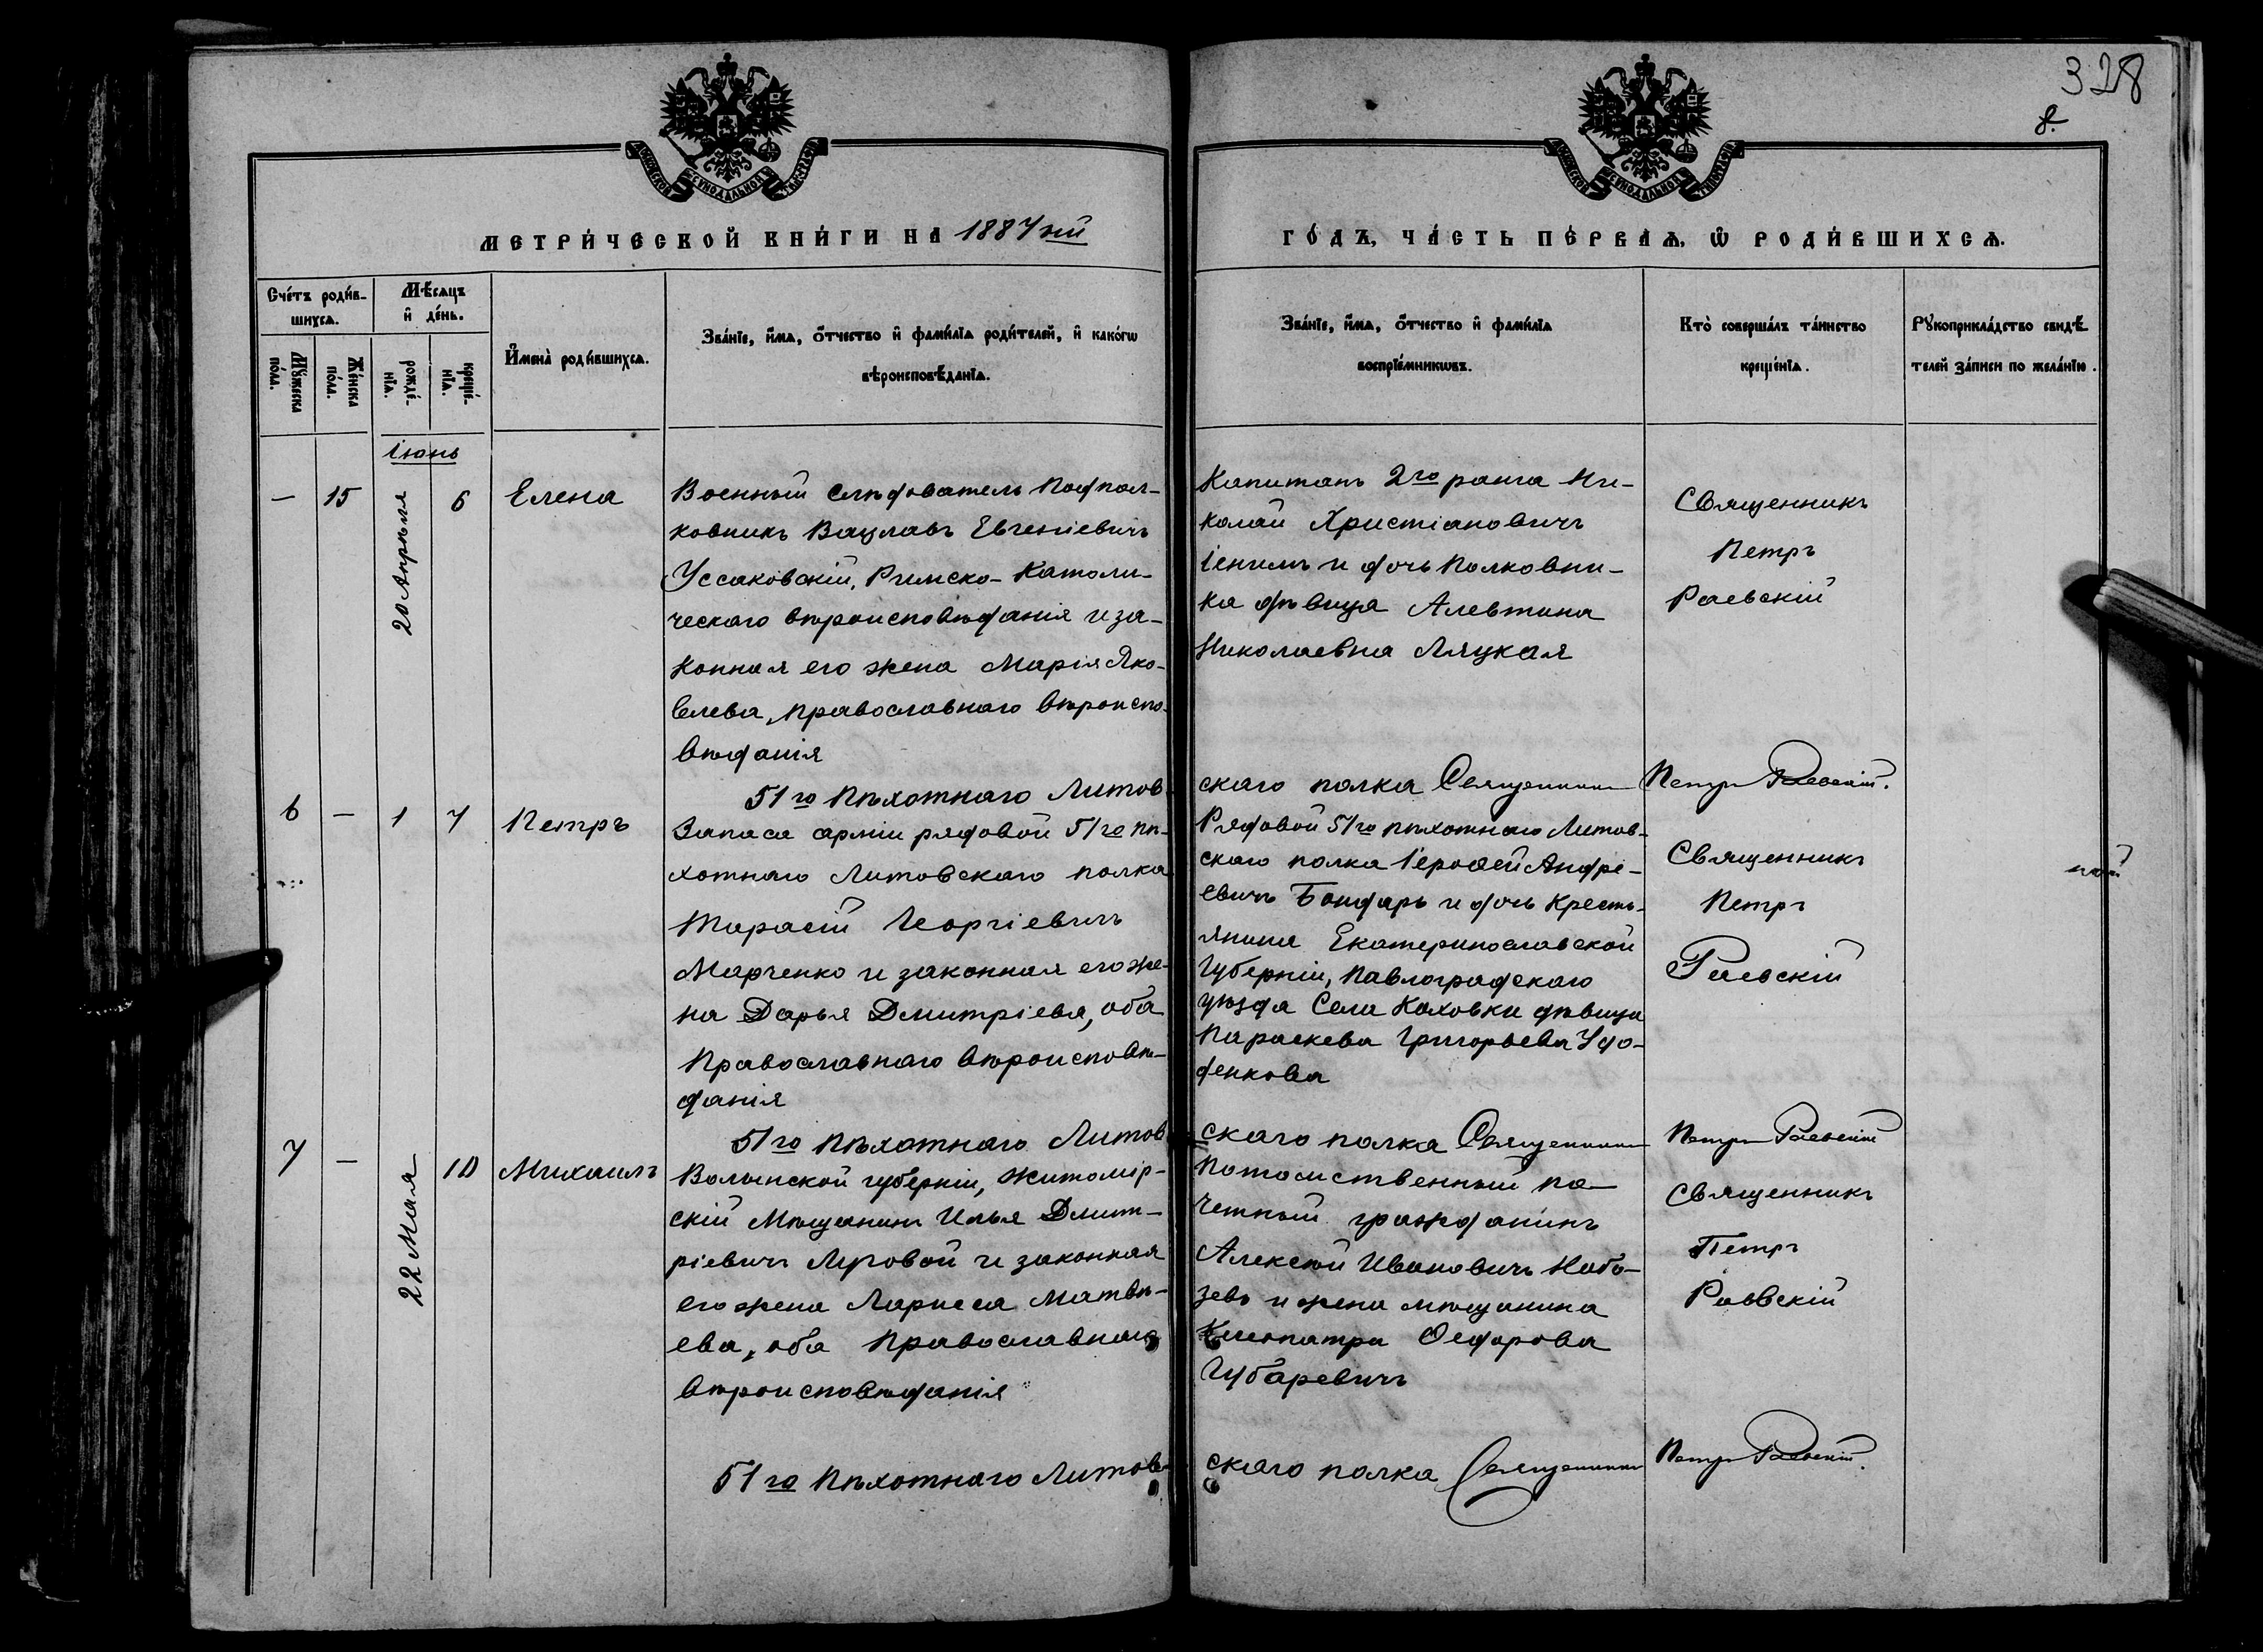 328
8.
МОСКОВСКОЙ СУНОДАЛЬНОЙ ТИПОГРАФІИ
МОСКОВСКОЙ СУНОДАЛЬНОЙ ТИПОГРАФІИ
МЕТРИ́ЧЕСКОЙ КНИ́ГИ НА 1887й
ГО́ДЪ, ЧА́СТЬ ПЕ́РВАѦ, Ѡ РОДИ́ВШИХСѦ.
Сче́тъ роди́в-
шихсѧ.
Мꙋ́жеска по́ла.
Же́нска по́ла.
Мѣ́сяцъ
и҆ де́нь.
рожде́-
нїѧ.
креще́-
нїѧ.
И҆мена̀ роди́вшихсѧ.
Зва́нїе, и҆́мѧ, о҆́тчество и҆ фами́лїѧ роди́телей, и҆ како́гѡ
вѣроисповѣ́данїѧ.
Зва́нїе, и҆́мѧ, о҆́тчество и҆ фами́лїѧ
воспрїе́мникѡвъ.
Кто̀ соверша́лъ та́инство
креще́нїѧ.
Рꙋкоприкла́дство свидѣ́-
телей за́писи по жела́нїю.
Іюнь
— 15
20 Апрѣля
6
Елена
Военный слѣдователь Подпол-
ковникъ Вацлавъ Евгеніевичъ
Уссаковскій, Римско-Католи-
ческаго вѣроисповѣданія и за-
конная его жена Марія Яко-
влева, православнаго вѣроиспо-
вѣданія
Капитанъ 2го ранга Ни-
колай Христіановичъ
и дочь Полковни-
ка дѣвица Алевтина
Николаевна Ляцкая
Священникъ
Петръ
Раевскій
51го Пѣхотнаго Литов
скаго полка Священникъ Петръ Раевскій.
6 — 1 7
Петръ
Запаса арміи рядовой 51го пѣ-
хотнаго Литовскаго полка
Тарасій Георгіевичъ
Марченко и законная его же-
на Дарья Дмитріева, оба
Православнаго вѣроисповѣ-
данія
Рядовой 51го пѣхотнаго Литов-
скаго полка Іерофей Андре-
евичъ Бондарь и дочь Кресть-
янина Екатеринославской
Губерніи, Павлоградскаго
уѣзда Села Каховки дѣвица
Параскева Григорьева Удо-
денкова
Священникъ
Петръ
Раевскій
51го Пѣхотнаго Литов
скаго полка Священникъ Петръ Раевскій
7 —
22 Мая
10
Михаилъ
Волынской губерніи, Житомір-
скій Мѣщанинъ Илья Дмит-
ріевичъ Луговой и законная
его жена Лариса Матвѣ-
ева, оба Православнаго
вѣроисповѣданія
Потомственный по-
четный гражданинъ
Алексѣй Ивановичъ Набо-
зевъ и жена мѣщанина
Клеопатра Ѳедорова
Губаревичъ
Священникъ
Петръ
Раевскій
51го Пѣхотнаго Литов-
скаго полка Священникъ Петръ Раевскій.